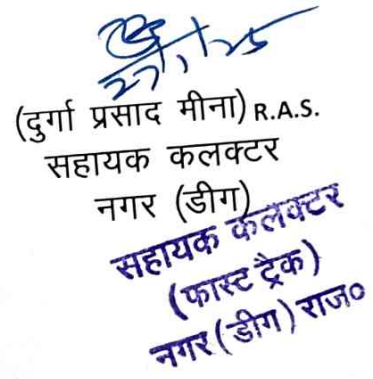 27/1/25
(दुर्गा प्रसाद मीना) R.A.S.
सहायक कलक्टर
नगर (डीग)
सहायक कलक्टर
(फास्ट ट्रैक)
नगर (डीग) राज०